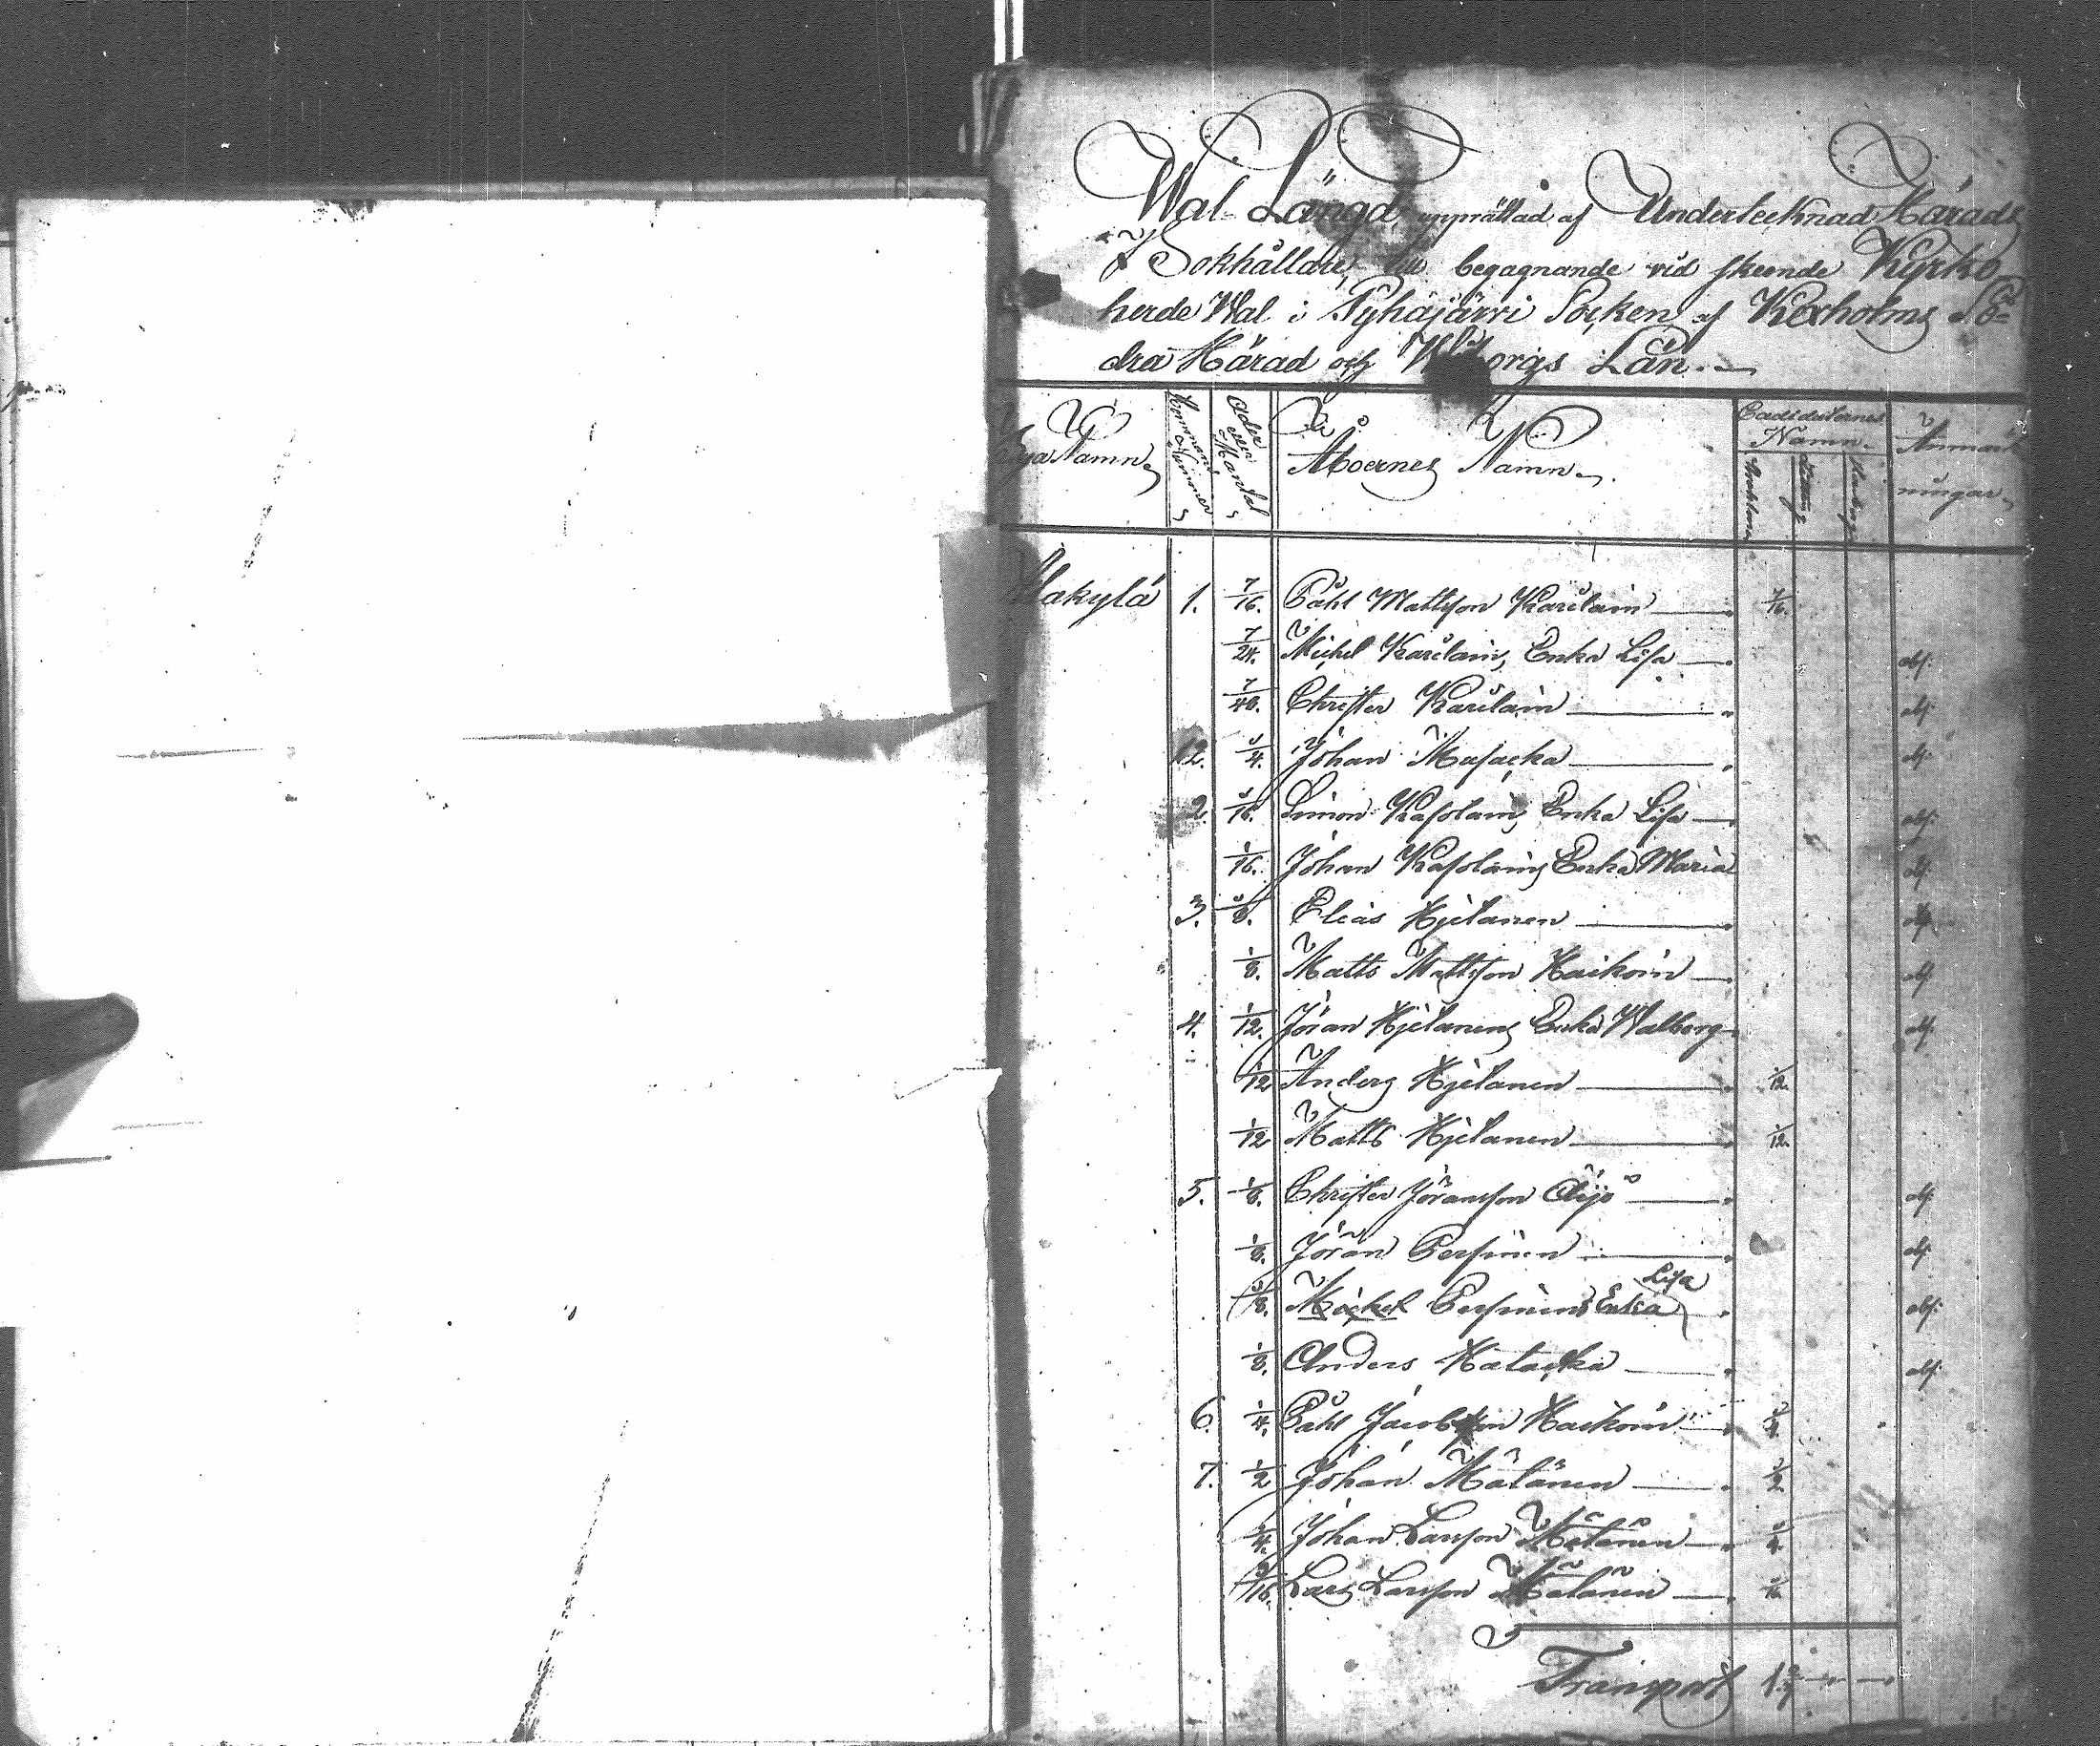 Wal Längd, upprättad af Undertecknad Härads
Bokhållare, till begagnande vid skeende Kyrko-
herde Wal i Pyhäjärvi Socken af Kexholms Sö-
dra Härad och Wiborgs Län.
Byanamn Hemmans Nummer Åboernes Namn Candidaternes Namn Anmärk-
ningar
Alakylä 1. 7/16. Påhl Mattsson Karilain 7/16.
7/24. Michel Karilains Enka Lisa obs:
7/48. Christer Karilain obs:
12. 1/4. Johan Masacka obs:
2. 1/16. Simon Kasolains Enka Lisa obs:
1/16. Johan Kasolains Enka Maria obs:
3. 1/8. Elias Hjetanen obs:
1/8. Matts Mattsson Haikoin obs:
4. 1/12. Jöran Hjetanens Enka Walborg obs:
1/12 Anders Hjetanen 1/12.
1/12 Matts Hjetanen 1/12.
5. 1/8. Christer Jöransson Äijö obs:
1/8. Jöran Persinen obs:
1/8. Michel Persinens Enka Lisa obs:
1/8. Anders Hatacka obs:
6. 1/4. Påhl Jacobsson Haikoin 1/4.
7. 1/2 Johan Mätänen 1/2
1/4. Johan Larsson Mätänen 1/4.
1/16. Lars Larsson Mätänen 1/16
Transport